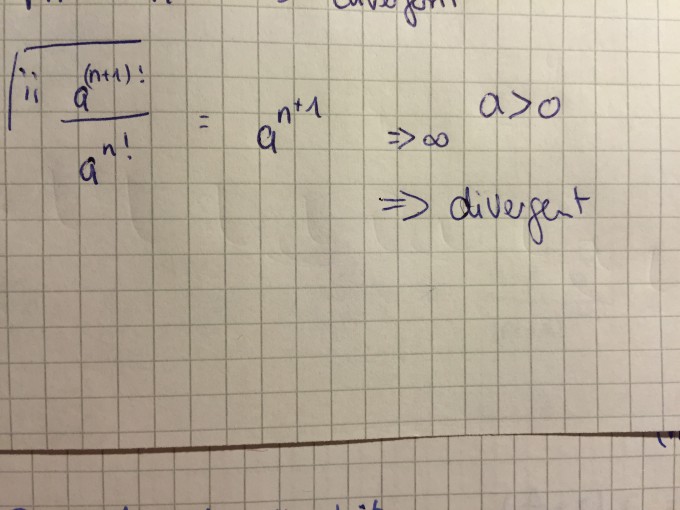 divergent
ii a^(n+1)! / a^n! = a^n+1 a>0
=> ∞
=> divergent